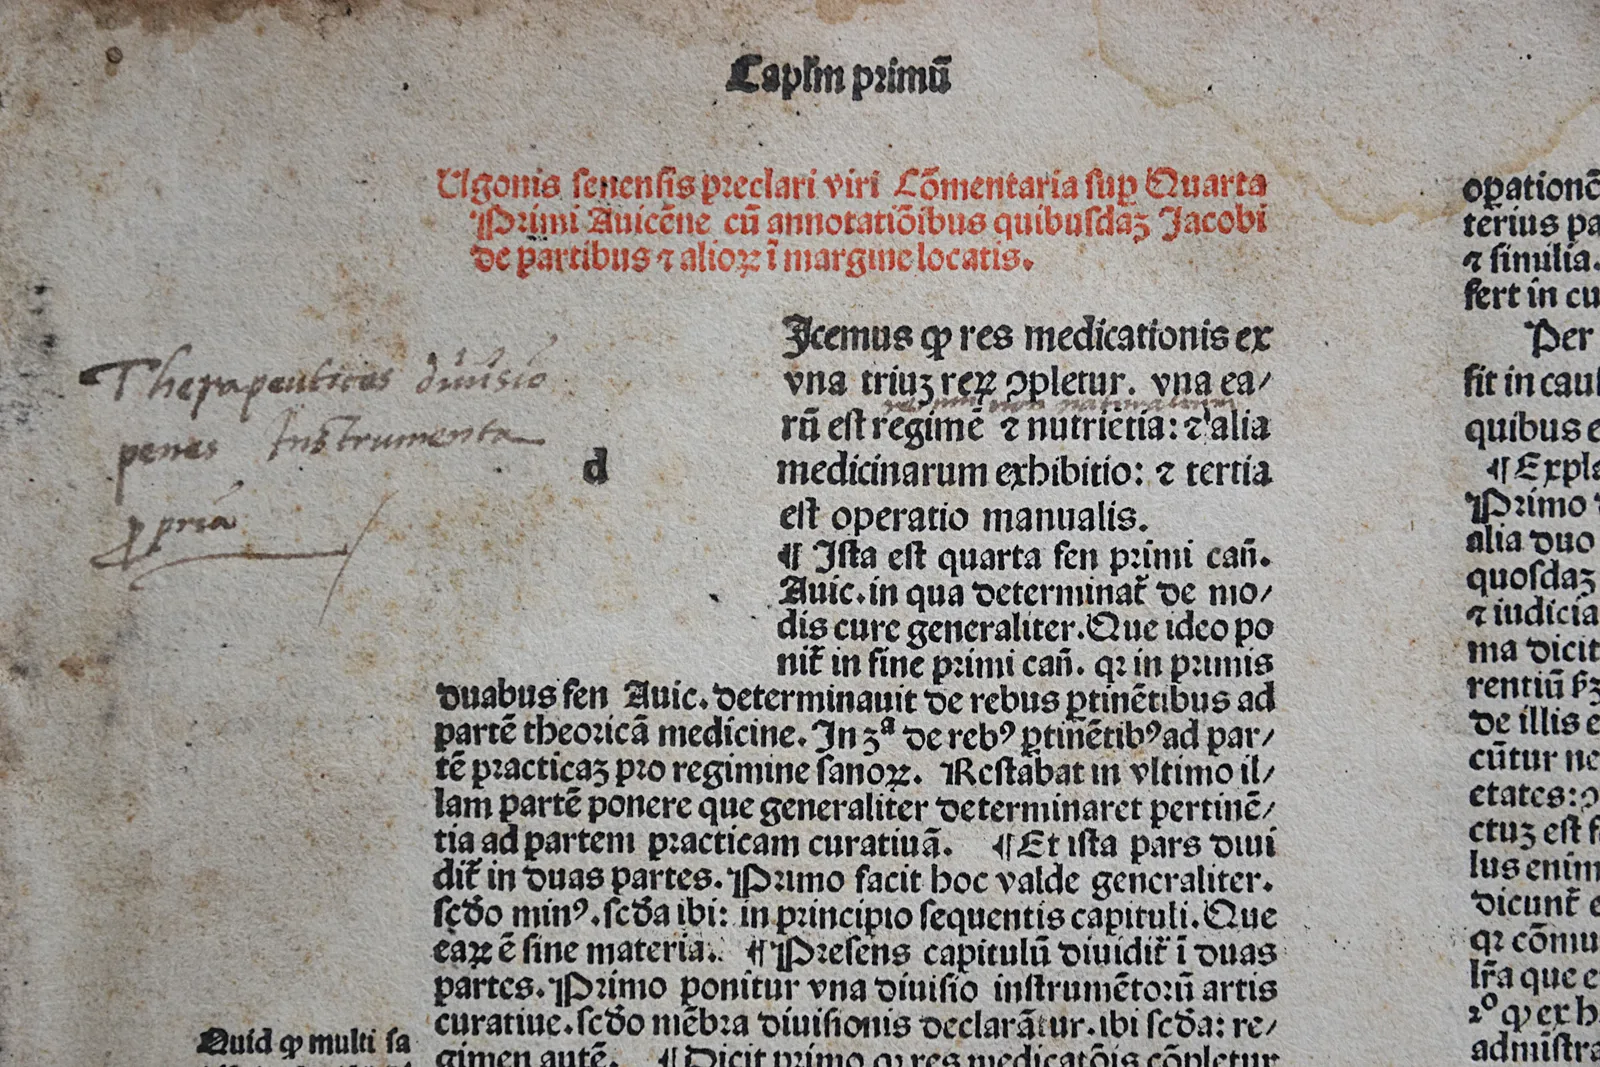 Caplm primū
Ugonis senensis preclari viri Cōmentaria sup Quarta
Primi Auicēne cū annotatiōibus quibusdaʒ Jacobi
de partibus ⁊ alioꝝ ī margine locatis.
Therapeutices diuisio
penes Instrumenta
ꝓpria
d
Jcemus ꝙ res medicationis ex
vna triuʒ reꝝ ↄpletur. vna ea/
rū est regimē ⁊ nutrietia: ⁊ alia
medicinarum exhibitio: ⁊ tertia
est operatio manualis.
¶ Ista est quarta fen primi cañ.
Auic. in qua determinat̄ de mo/
dis cure generaliter. Que ideo po
nit̄ in fine primi cañ. qꝛ in primis
duabus fen Auic. determinauit de rebus ꝑtinētibus ad
partē theoricā medicine. In ʒª de rebꝰ ꝑtinētibꝰ ad par/
tē practicaʒ pro regimine sanoꝝ. Restabat in vltimo il/
lam partē ponere que generaliter determinaret pertinē/
tia ad partem practicam curatiuā. ¶ Et ista pars diui
dit̄ in duas partes. Primo facit hoc valde generaliter.
scďo minꝰ. scďa ibi: in principio sequentis capituli. Que
eaꝝ ē sine materia. ¶ Presens capitulū diuidit̄ ī duas
partes. Primo ponitur vna diuisio instrumētorū artis
curatiue. scďo mēbra diuisionis declarātur. ibi scďa: re/
gimen autē. ¶ Dicit primo qꝛ res medicatōis cōpletur
Quid ꝙ multi sa
oꝑationē
terius pa
⁊ similia.
fert in cu
Per
fit in caus
quibus e
¶ Expla
Primo
alia duo
quosdaʒ
⁊ iudicia
ma dicit
rentiū
de illis e
cūtur ne
etates:
ctuʒ est
lus enim
dicunt̄ e
qꝛ cōmu
lr̄a que e
2º ꝙ ex h
admistra